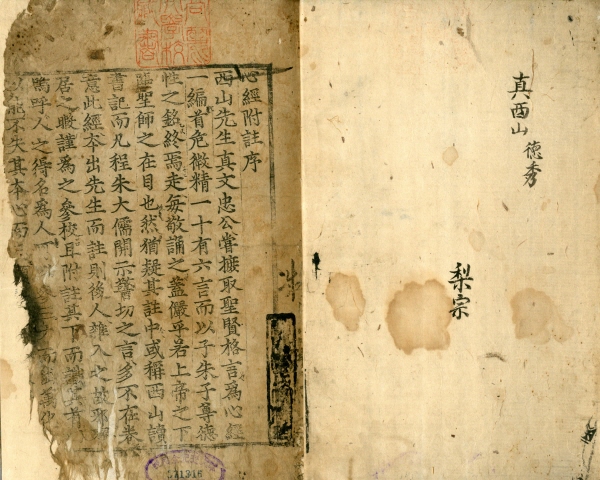 真西山 德秀
梨宗
心經附註序
西山先生真文忠公嘗摭取聖賢格言爲心經
一編首危微精一十有六言而以子朱子尊德
性之銘終焉走每敬誦之蓋儼乎若上帝之下
臨聖師之在目也然猶疑其註中或稱西山讀
書記而凡程朱大儒開示警切之言多不在卷
意此經本出先生而註則後人雜入之故邪
居之暇謹爲之參校且附註其下而識其首
嗚呼人之得名爲人參三才而萬化
能不失其本心而